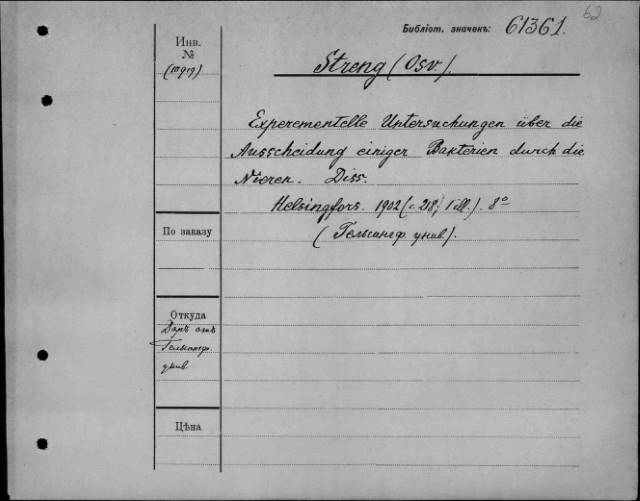 62
Библіот. значекъ: 61361.
Инв.
№
Streng (Osv).
Experementelle Untersuchungen über die
Ausscheidung einiger Bakterien durch die
Nieren. Diss.
Helsingfors. 1902 ( 218, 1 ill.). 8°
По заказу
(Гельсингф. унив.).
Откуда
Даръ отъ
Гельсингф.
унив.
Цѣна